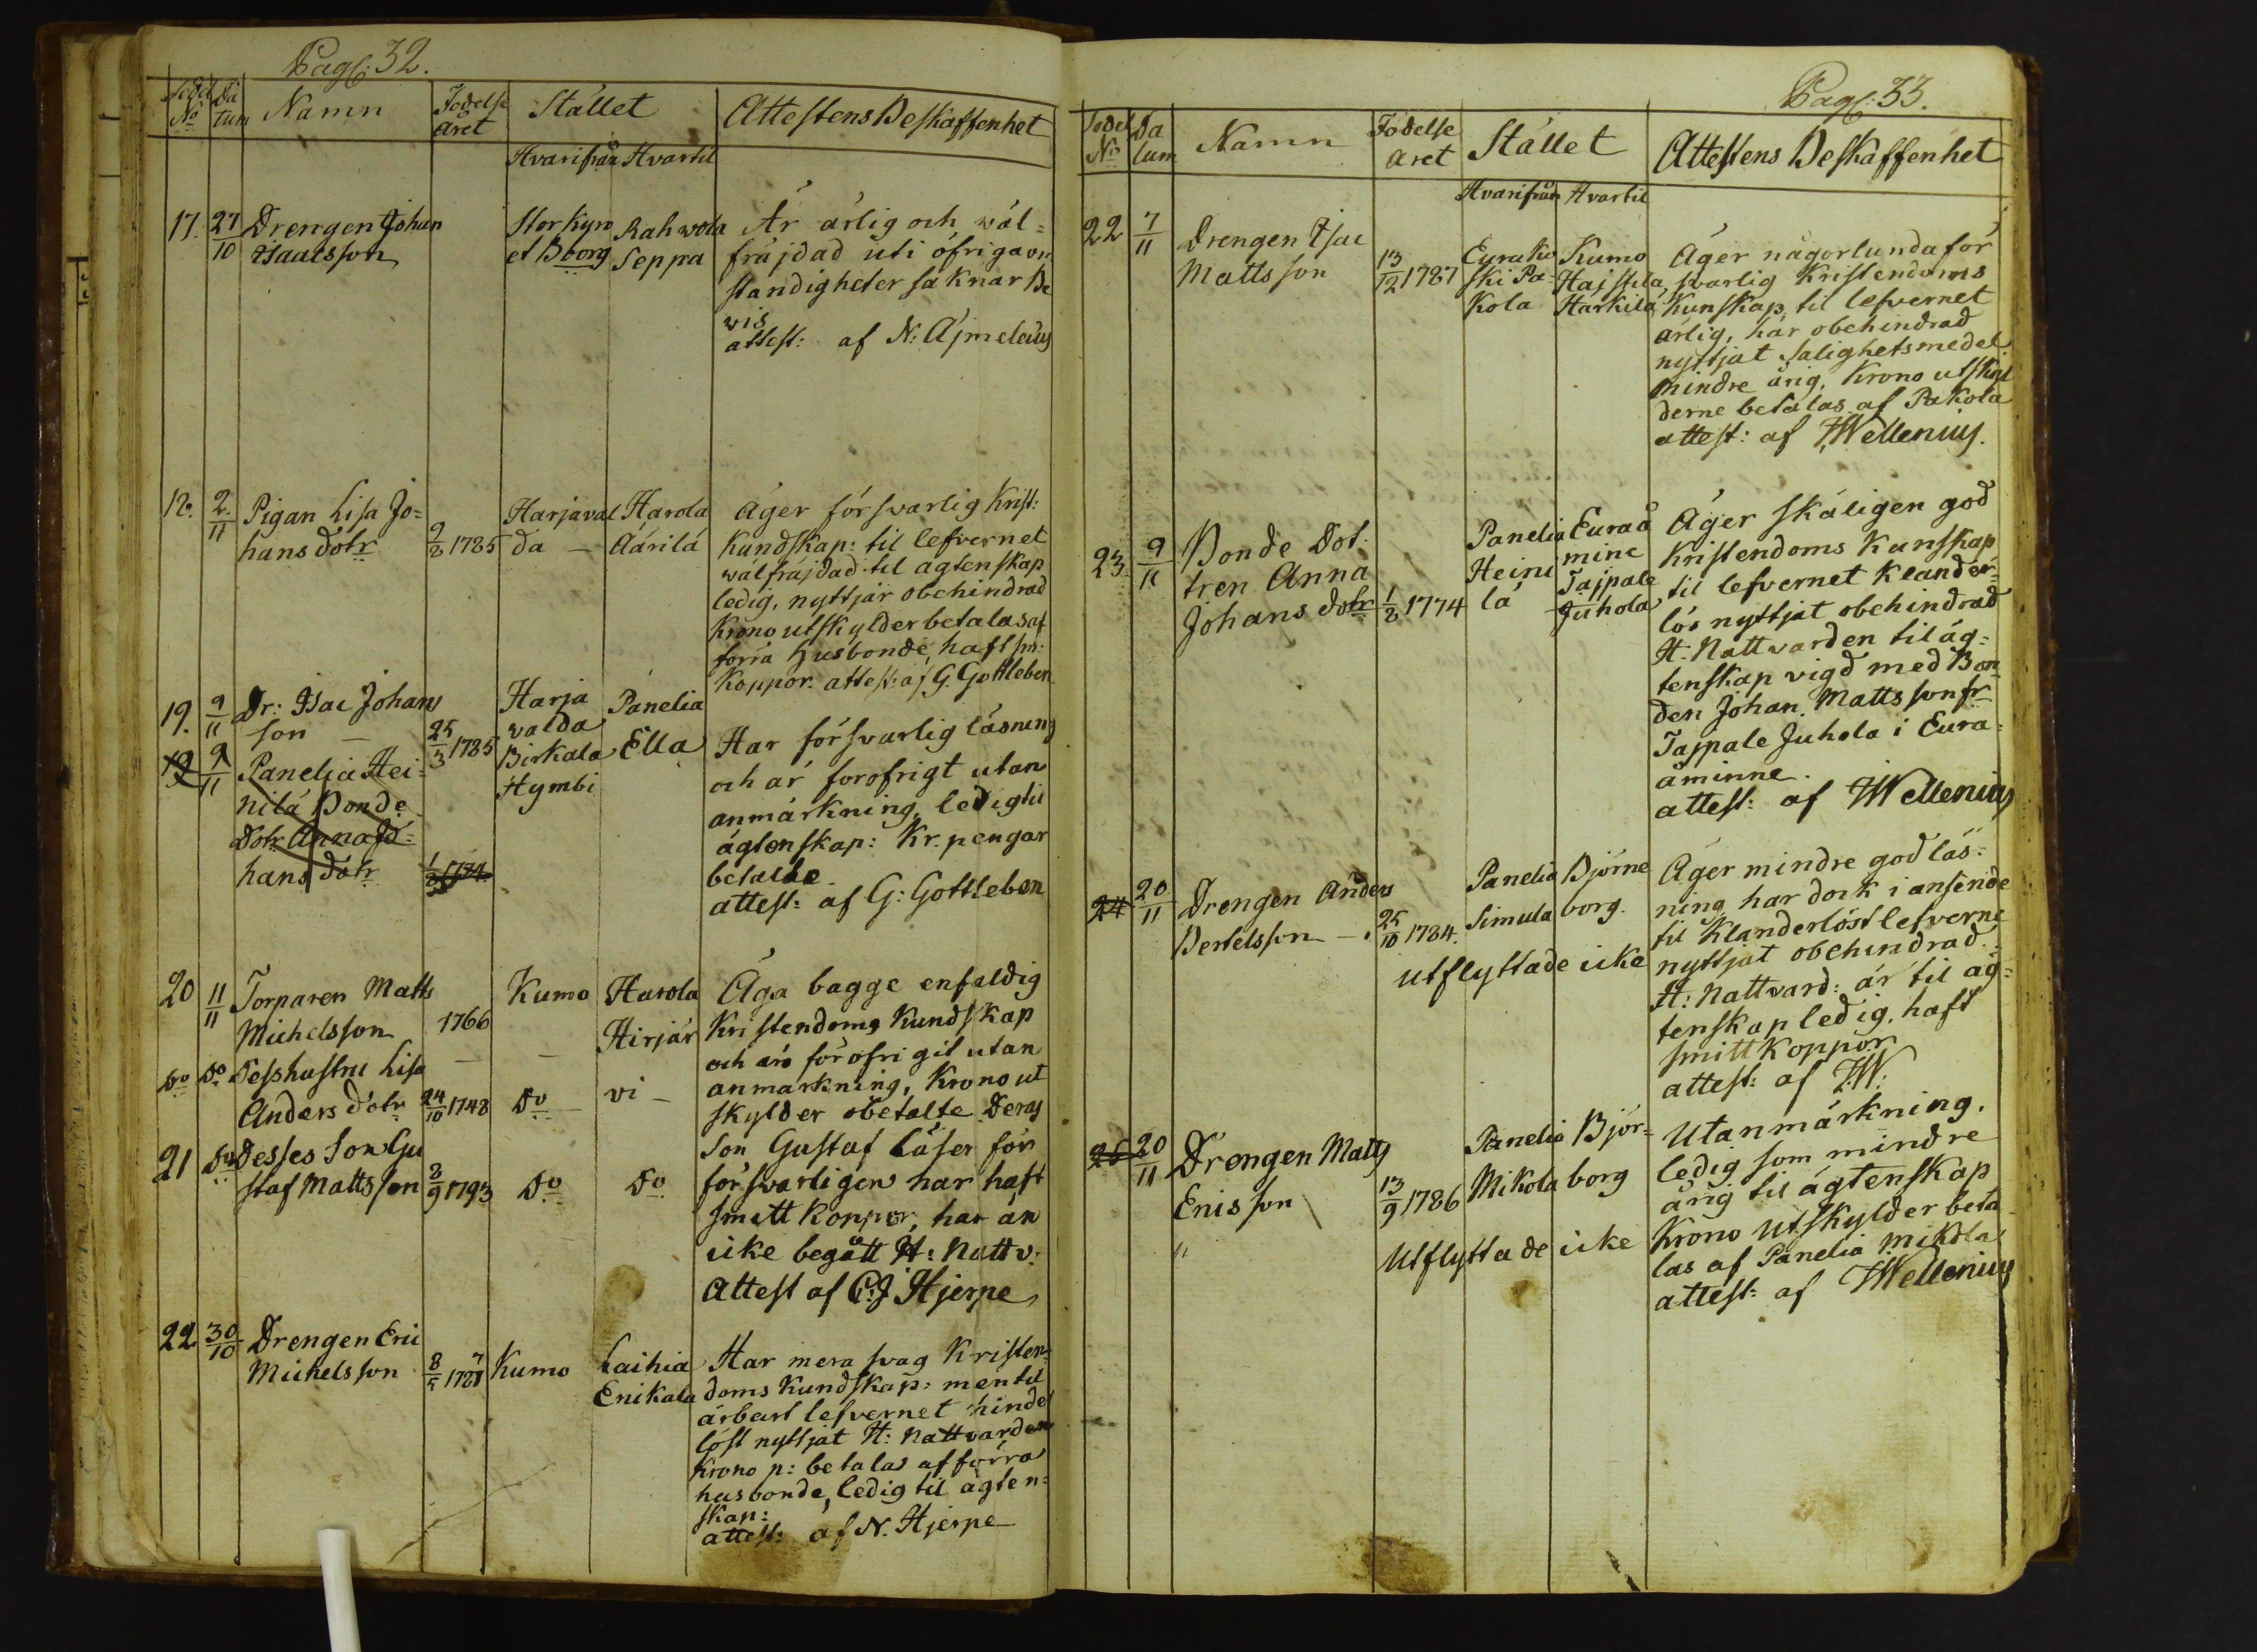 Pag: 32.
Sedel No Da tum Namn Födelse året Stället Attestens Beskaffenhet
Hvarifrån Hvartil
17. 27/10 Drengen Johan
Isaacsson
Storkyro
et Bborg
Rahwola
Seppa
Är ärlig och wäl=
fräjdad uti öfriga om
standigheter saknar Be
vis
attest: af N: Ajmeleüs
18. 2/11 Pigan Lisa Jo=
hans dotr 9/8 1785
Harjaval
da —
Harola
Äärilä
Äger försvarlig Krist:
Kundskap: til lefvernet
wälfräjdad til ägtenskap
ledig, nyttjar obehindrad
Krono utskylder betalas af
förra Husbonde, haft sm:
Koppor. attest: af G. Gottleben
19. 9/11 Dr: Isac Johans
son — 25/3 1785
Harja
valda
Birkala
Hymbi
Panelia
Ella
Har försvarlig läsning
och är förofrigt utan
anmärkning, ledig til
ägtenskap: Kr. pengar
betalte
attest: af G: Gottleben
19 9/11 Panelia Hei=
nilä Bonde
Dotr Anna Jo=
hans dotr 1/8 1774.
20 11/11 Torparen Matts
Michelsson 1766
Kumo
—
Harola
Hirjär
vi —
Do Do Dess hustru Lisa —
Anders dotr 24/10 1748 Do —
21 Do Desses Son Gu
staf Mattsson 2/9 1793 Do Do
Äga bägge enfaldig
Kristendoms Kundskap
och äro för ofrigit utan
anmärkning, Krono ut
skylder obetalte Deras
Son Gustaf Läser för
försvarligen har haft
smittkoppor, har än
icke begått H: Nattv:
Attest af C:J Hjerpe
22 30/10 Drengen Eric
Michelsson 8/5 1787 Kumo
Laihia
Erikala
Har mera svag Kristen=
doms Kundskap: men til
ärbart lefvernet hinde
löst nyttjat H: Nattvarden
Krono p: betalas af förra
husbonde, ledig til ägten=
skap:
attest: af N. Hjerpe
Pag: 33.
Sedel No Da tum Namn Födelse året Stället Attestens Beskaffenhet
Hvarifrån Hvartil
22 7/11 Drengen Isac
Mattsson 13/12 1787
Eura Kiu
ski Pa-
Kola
Kumo
Hajstila,
Harkilä
Äger någorlunda för
svarlig Kristendoms
Kunskap, til lefvernet
ärlig, här obehindrad
nyttjat Salighetsmedel
mindre årig, Krono utskyl
derne betalas af Pakola
attest: af JWellenius.
23. 9/11 Bonde Dot
tren Anna
Johans dotr 1/8 1774
Panelia
Heini
lä
Euraå
mine
Tajpale
Juhola
Äger skäligen god
Kristendoms Kunskap
til lefvernet Klander=
lös nyttjat obehindrad
H. Nattvarden til äg=
tenskap vigd med Bon
den Johan Mattsson fr
Tajpale Juhola i Eura=
åminne.
attest: af JWellenius
24 20/11 Drengen Anders
Bertelsson — 25/10 1784.
Panelia
Simula
Björne
borg.
utflyttade icke
Äger mindre god läs=
ning, har dock i anseende
til Klanderlöst lefverne
nyttjat obehindrad
H: Nattvard: är til äg=
tenskap ledig, haft
smittkoppor
attest: af JW.
25 20/11 Drengen Matts
Ericsson 13/9 1786
"
Panelia
Mikola
Björ=
borg
Utflyttade icke
Utanmärkning.
ledig som mindre
årig til ägtenskap
Krono utskylder beta
las af Panelia Mikola
attest: af JWellenius